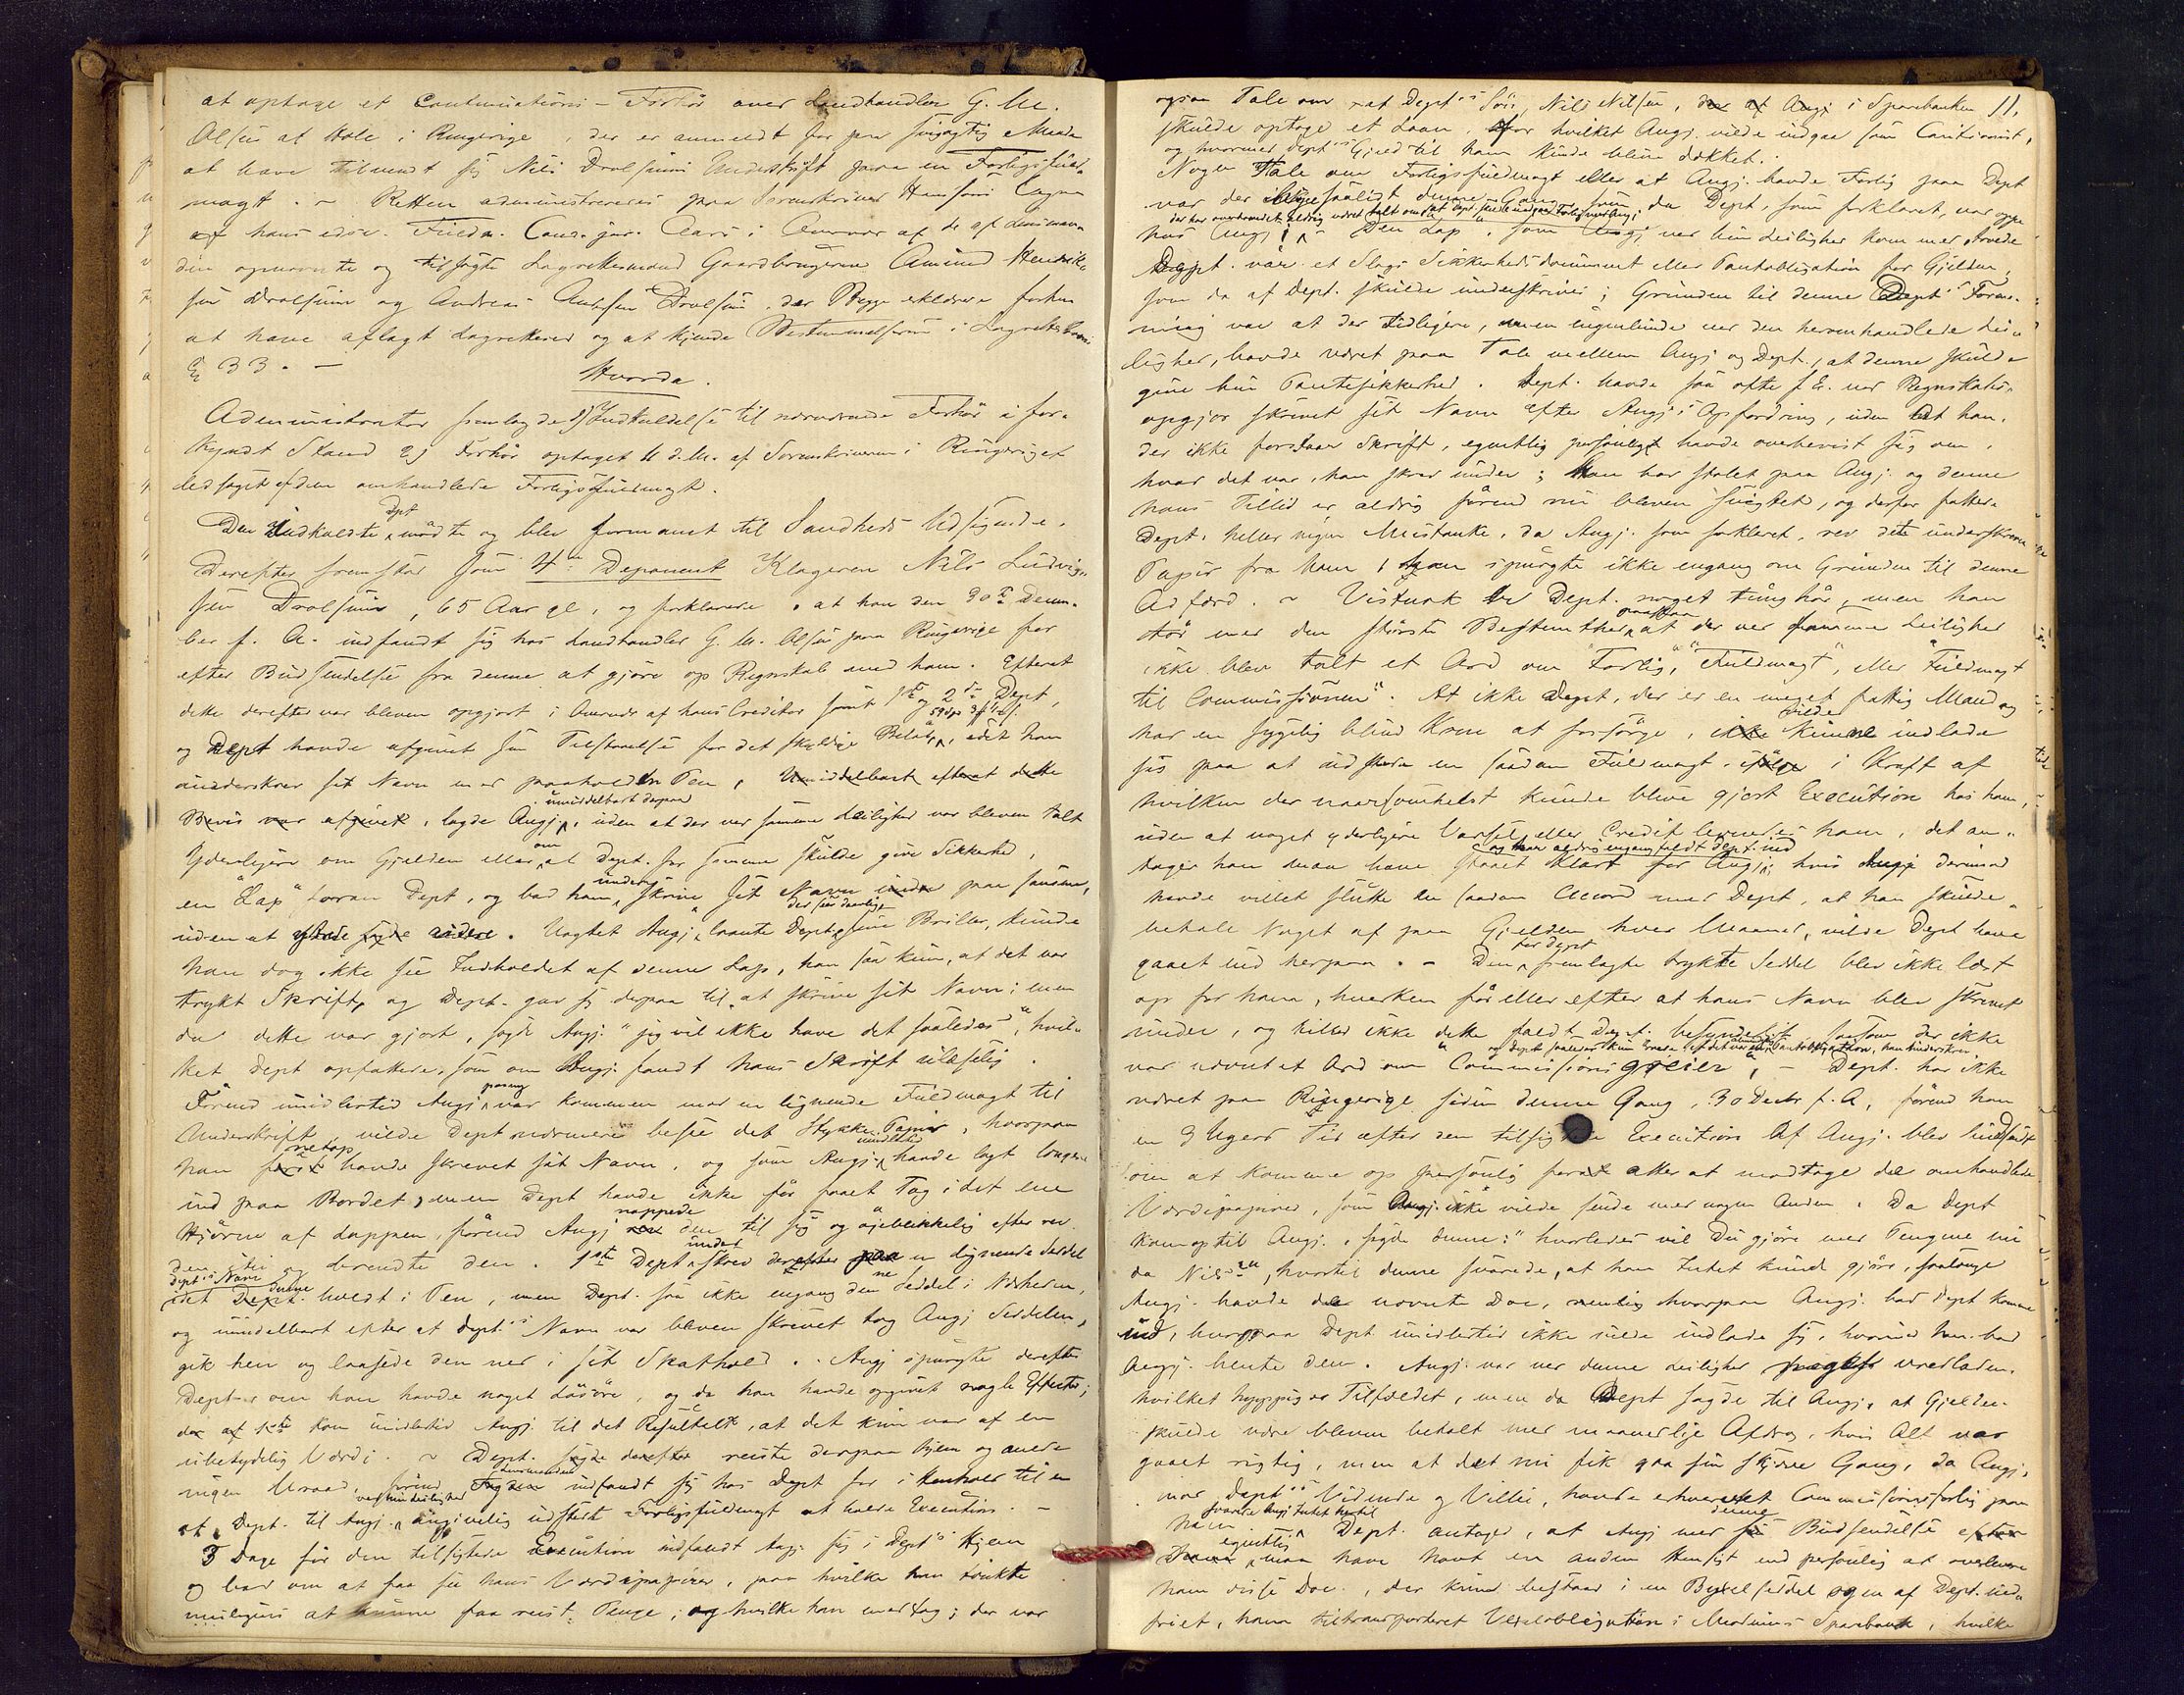 at optage et Continuations-Forhør over Landhandler G. M.
Olsen af Hole i Ringerige, der er anmeldt for paa svigagtig Maade
at have tilvendt sig Nils Drolsums Underskrift paa en Forligsfuld-
magt. - Retten administreredes paa Sorenskriver Hansons Vegne
af hans edsv. Fuldm. Cand. jur. Aars i Overvær af de af Lensman-
den opnævnte og tilsagte Lagrettesmænd Gaardbrugerne Amund Hendrik-
sen Drolsum og Andreas Andersen Drolsum, der Begge erklærede forhen
at have aflagt Lagrettesed og at kjende Bestemmelserne i Lagretteloven
§ 33. -
Hvorda.
Administrator fremlagde 1) Indkaldelse til nærværende Forhør i for-
kyndt Stand 2) Forhør optaget 11 d. M. af Sorenskriveren i Ringeriget
ledsaget af den omhandlede Forligsfuldmagt.
Dept
Den Indkaldte mødte og blev formanet til Sandheds Udsigende.
Derefter fremstod som 4de Deponent Klageren Nils Ludvig-
sen Drolsum, 65 Aar gl., og forklarede, at han den 30te Decem-
ber f. A. indfandt sig hos Landhandler G. M. Olsen paa Ringerige for
efter Budsendelse fra denne at gjøre op Regnskab med ham. Efterat
dette derefter var bleven opgjort i Overvær af hans Creditor samt 1ste og 2den Dept,
og Dept havde afgivet sin Tilstaaelse for det skyldige Beløb, idet han
underskrev sit Navn med paaholden Pen, Umiddelbart efterat dette
umiddelbart derpaa
Bevis var afgivet, lagde Angj., uden at der ved samme Leilighed var bleven talt
Yderligere om Gjelden eller om at Dept. for samme skulde give Sikkerhed,
en "Lap" foran Dept, og bad ham underskrive sit Navn under paa samme,
der saa daarlig
uden at videre. Uagtet Angj. laante Dept sine Briller, kunde
han dog ikke see Indholdet af denne Lap, han saa kun, at det var
trykt Skrift, og Dept. gav sig derpaa til at skrive sit Navn; men
da dette var gjort, sagde Angj. "jeg vil ikke have det saaledes", hvil-
ket Dept opfattede, som om Angj. fandt hans Skrift ulæselig.
Førend imidlertid Angj. paany var kommen med en lignende Fuldmagt til
Underskrift, vilde Dept nærmere besee det Stykke Papir, hvorpaa
netop imidlertid
han først havde skrevet sit Navn, og som Angj. havde lagt længere
ind paa Bordet, men Dept havde ikke før faaet Tag i det ene
nappede
Hjørne af Lappen, førend Angj. rev den til sig og øieblikkelig efter rev
den itu og brændte den. 1ste Dept under skrev derefter paa en lignende Seddel
Dept's Navn
idet Dept. holdt i Pen, men Dept. saa ikke engang denne Seddel i Nærheden,
og umiddelbart efter at Dept's Navn var bleven skrevet tog Angj Seddelen,
gik hen og laasede den ned i sit Skathold. Angj spurgte derefter
Dept. om han havde noget Løsøre, og da han havde opgivet nogle Effecter,
kom imidlertid Angj. til det Resultat, at det kun var af en
ubetydelig Værdi. - Dept. sagde derefter reiste derpaa hjem og anede
Lensmanden
ingen Uraad, førend indfandt sig hos Dept for i Henhold til en
ved hin Leilighed
af Dept. til Angj. angivelig udstedt Forligsfuldmagt at holde Execution. -
3 Dage før den tilsigtede Execution indfandt Angj. sig i Dept's Hjem
og bad om at faa see hans Værdipapirer, paa hvilke han tænkte
muligens at kunne faa reist Penge, og hvilke han medtog; der var
11.
ogsaa Tale om at Dept's Søn, Nils Nilsen, der af Angj i Sparebanken
skulde optage et Laan, for hvilket Angj. vilde indgaa som Cautionist,
og hvormed Dept's Gjæld til ham kunde blive dækket.
Nogen Tale om Forligsfuldmagt eller at Angj. havde Forlig paa Dept
var der ligesaalidt denne Gang, som da Dept., som forklaret, var oppe
der har overhovedet aldrig været talt om at Dept. skulde indgaa Forlig med Angj;
hos Angj; Den Lap, som Angj ved hin Leilighed kom med, troede
Dept. var et Slags Sikkerhedsdocument eller Pantobligation for Gjelden,
som da af Dept. skulde underskrives; Grunden til denne Dept's Forme-
ning var at der tidligere, men ingenlunde ved den heromhandlede Lei-
lighed, havde været paa Tale mellem Angj og Dept., at denne skulde
give hin Pantesikkerhed. Dept. havde saa ofte f. Ex. ved Regnskabs-
opgjør skrevet sit Navn efter Angj's Opfordring, uden at han,
der ikke forstaar Skrift, egentlig personligt havde overbevist sig om,
hvad det var, han skrev under; Han har stolet paa Angj. og denne
hans Tillid er aldrig førend nu bleven svigtet, og derfor fattede
Dept. heller ingen Mistanke, da Angj. som forklaret, rev det underskrevne
Papir fra ham, han spurgte ikke engang om Grunden til denne
Adfærd. - Vistnok er Dept. noget tunghør, men han
paastaa
tør med den største Bestemthed at der ved samme Leilighed
ikke blev talt et Ord om "Forlig", "Fuldmagt", eller "Fuldmagt
til Commissionen". At ikke Dept, der er en meget fattig Mand og
vilde
har en sygelig blind Kone at forsørge, ikke kunne indlade
sig paa at udstede en saadan Fuldmagt, i Kraft af
hvilken der naarsomhelst kunde blive gjort Execution hos ham,
uden at noget yderligere Varsel eller Credit levnedes ham, det an-
og han aldrig engang faldt Dept. ind
tager han maa have staaet klart for Angj; hvis Angj derimod
havde villet slutte en saadan Accord med Dept, at han skulde
betale Noget af paa Gjelden hver Maaned, vilde Dept have
for Dept
gaaet ind herpaa. - Den fremlagte trykte Seddel blev ikke læst
op for ham, hverken før eller efter at hans Navn blev skrevet
under, og heller ikke dette faldt Dept. besynderligt, saasom der ikke
var nævnt et Ord om Commissionsgreier, - Dept. har ikke
været paa Ringerige siden denne Gang, 30 Decbr f. A, førend han
en 3 Ugers Tid efter den tilsigtede Execution af Angj. blev budsendt
om at komme op personlig for atter at modtage de omhandlede
Værdipapirer, som Angj. ikke vilde sende med nogen Anden. Da Dept
kom op til Angj., sagde denne: "hvorledes vil Du gjøre med Pengene nu
da Nils", hvortil denne svarede, at han Intet kunde gjøre, saalænge
Angj. havde de nævnte Doc., hvorpaa Angj. bad Dept komme
ind, hvorpaa Dept imidlertid ikke vilde indlade sig, hvorimod han bad
Angj. hente dem. Angj. var ved denne Leilighed meget vredladen,
hvilket hyppig er Tilfældet, men da Dept sagde til Angj., at Gjelden
skulde være bleven betalt med maanedlige Afdrag, hvis Alt var
gaaet rigtig, men at det nu fik gaa sin skjæve Gang, da Angj.,
mod Dept's Vidende og Villie, havde erhvervet Commissionsforlig paa
svarede Angj Intet hertil denne
ham Dept. antager, at Angj med sin Budsendelse efter
egentlig
maa have havt en anden Hensigt end personlig at overlevere
ham disse Doc., der kun bestaar i en Bygselseddel og en af Dept. ind-
friet, ham tiltransporteret Vexelobligation i Modums Sparebank, hvilke